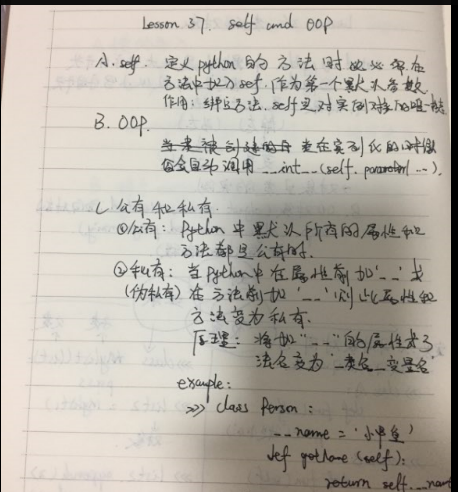 Lesson 37. self and OOP
A. self 定义python的方法时必必须在
方法中加入self. 作为第一个默认参数
作用: 绑定方法. self是对实例对象的
B. OOP.
在实例化的时候
会自动调用 __int__(self, ...).
C. 公有和私有.
①公有: Python中默认所有的属性和
方法都是公有的.
②私有: 当Python中在属性前加'__'或
(伪私有) 在方法前加'__' 则此属性和
方法变为私有.
原理: 将加"__"的属性或方
法名变为'_类名__变量名'
example:
>>> class Person:
__name = '小甲鱼'
def getname (self):
return self.__name